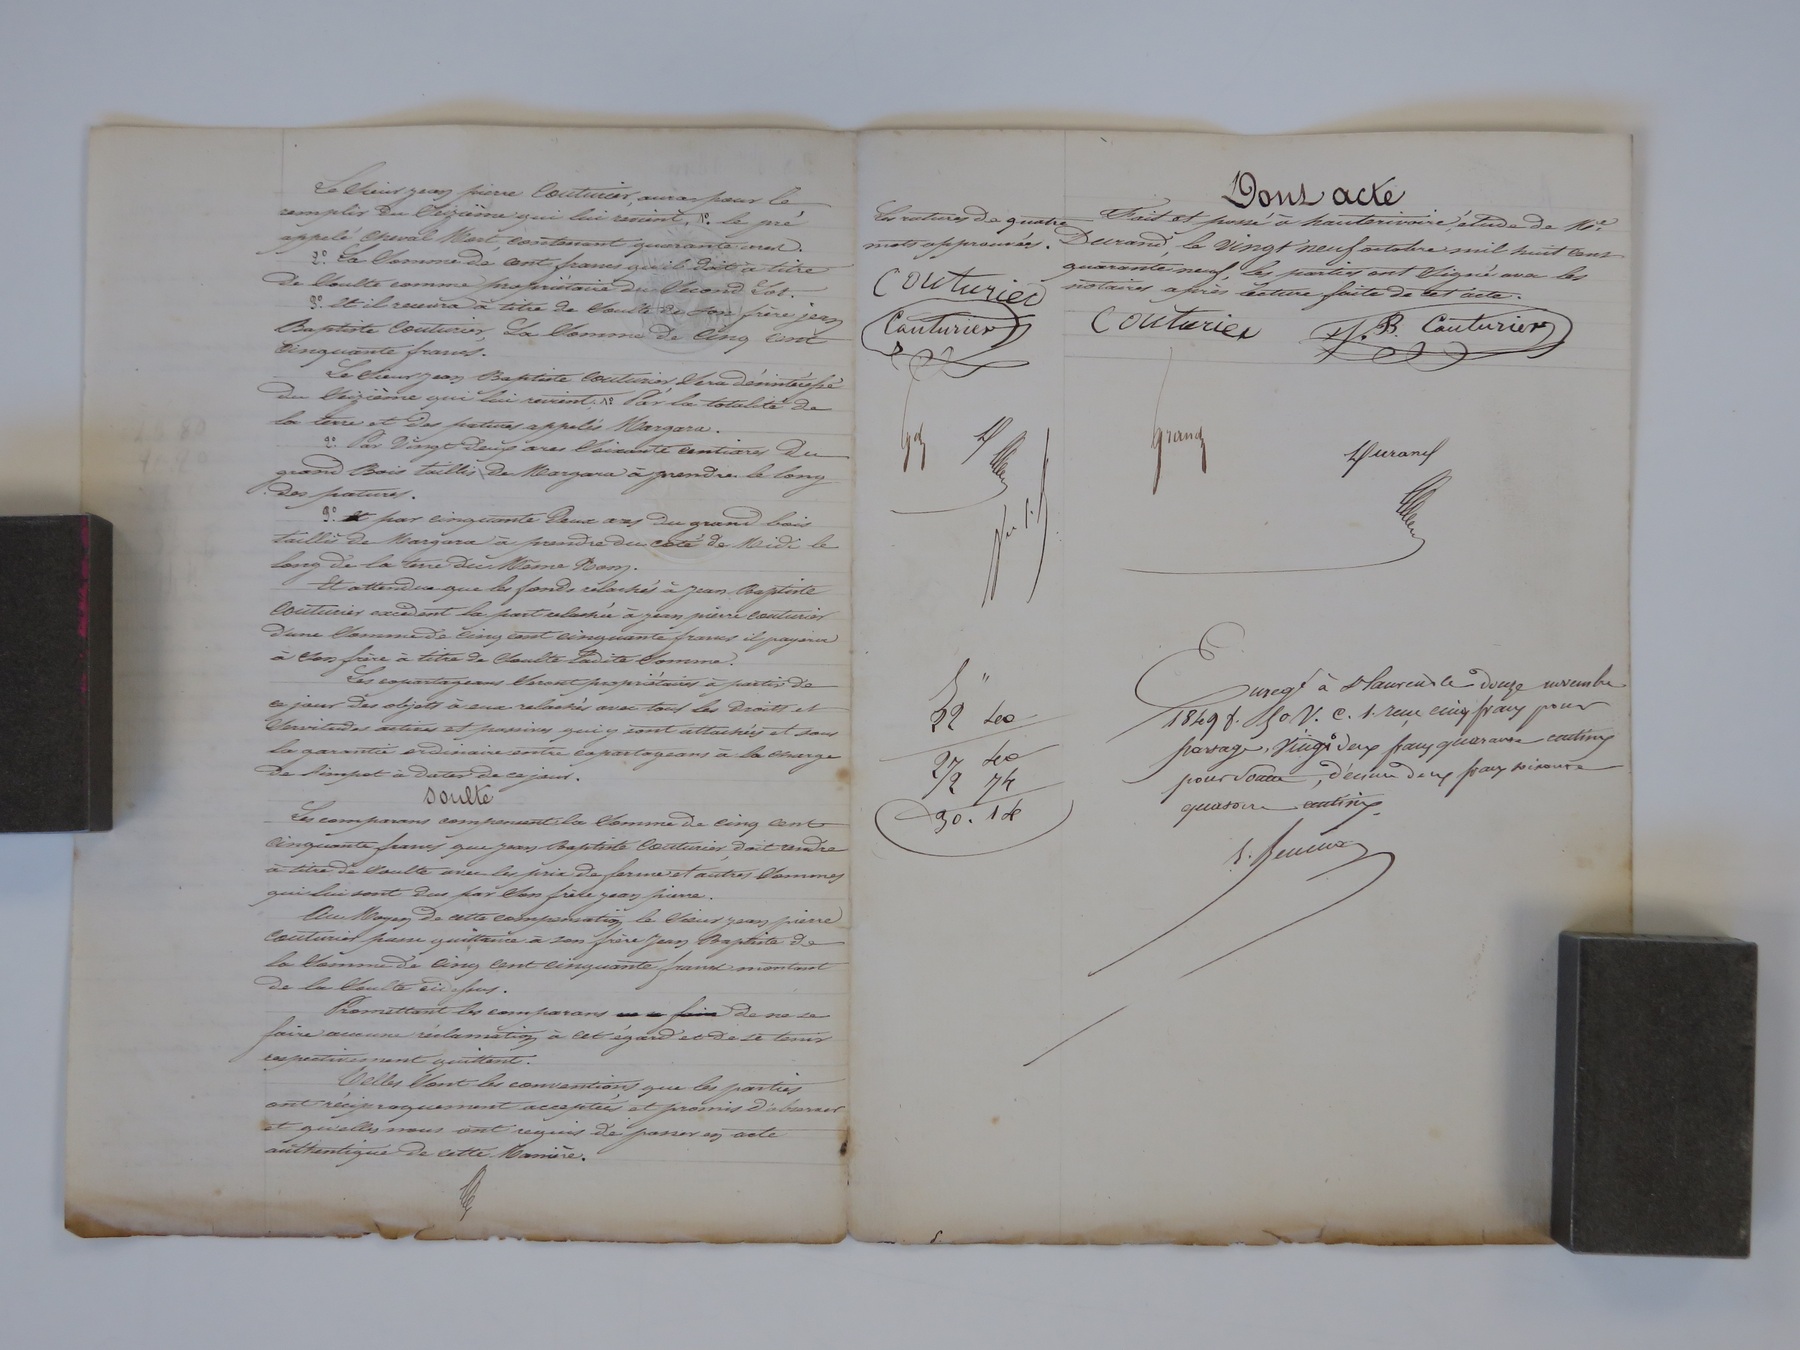 Le Sieur jean pierre Couturier, aura pour le
remplir du Seizième qui lui revient, 1º. le pré
appelé Cheval Mort, contenant quarante ares.
2º. La Somme de cent francs qu'il doit à titre
de Soulte comme propriétaire du Second Lot.
3º. Et il recevra à titre de Soulte de Son frère jean
Baptiste Couturier, La Somme de Cinq cent
Cinquante francs.
Le Sieur jean Baptiste Couturier Sera désintéressé
du Seizième qui lui revient, 1º Par la totalité de
la terre et des patures appelés Margara.
2º Par Vingt deux ares Soixante centiares du
grand Bois taillis de Margara à prendre le long
des patures.
3º et par cinquante Deux ares du grand bois
taillis de Margara à prendre du coté de Midi le
long de la terre du Même Nom.
Et attendu que les fonds relachés à jean Baptiste
Couturier excèdent la part relachée à jean pierre Couturier
d'une Somme de cinq cent cinquante francs il payera
à Son frère à titre de Soulte Ladite Somme.
Les copartageans Seront propriétaires à partir de
ce jour des objets à eux relachés avec tous les Droits et
Servitudes actives et passives qui y sont attachées et sous
la garantie ordinaire entre copartageans à la charge
de l'impot à dater de ce jour.
Soulte
Les comparans compensent la Somme de cinq cent
cinquante francs que jean Baptiste Couturier doit rendre
à titre de Soulte avec les prix de ferme et autres Sommes
qui lui sont dus par Son frère jean pierre.
Au Moyen de cette compensation le Sieur jean pierre
Couturier passe quittance à son frère jean Baptiste de
la Somme de Cinq cent cinquante francs montant
de la Soulte ci dessus.
Promettant les comparans de ne se
faire aucune réclamation à cet égard et de se tenir
respectivement quittent.
Telles Sont les conventions que les parties
ont réciproquement acceptées et promis d'observer
et qu'elles nous ont requis de passer en acte
authentique de cette Manière.
Dont acte
Fait et passé à hauterivoire, étude de Me.
Durand, le vingt neuf octobre mil huit cent
quarante neuf, les parties ont Signé avec les
notaires après lecture faite de cet acte.
Les ratures de quatre
mots approuvées.
Couturier
Couturier
Couturier J. B. Couturier
Grand Durand
5 "
22 40
27 40
2 74
30. 14
Enregé à St Laurent le douze novembre
1849 f. 50 V. C. 1. reçu cinq francs pour
partage, vingt deux francs quarante centimes
pour soulte, décime deux francs soixante
quatorze centimes